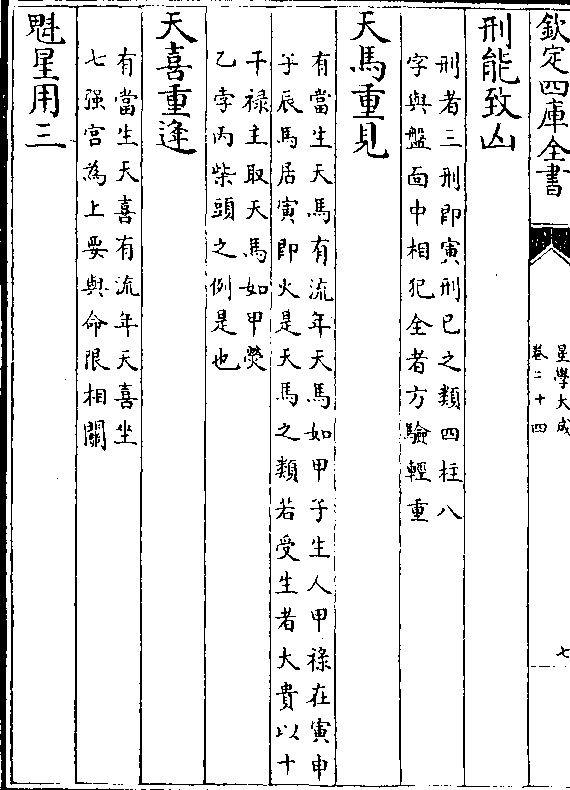 欽定四庫全書
星學大成
卷二十四
七
刑能致凶
刑者三刑即寅刑巳之類四柱八
字與盤面中相犯全者方驗輕重
天馬重見
有當生天馬有流年天馬如甲子生人甲祿在寅申
子辰馬居寅即火是天馬之類若受生者大貴以十
干祿主取天馬如甲熒
乙孛丙柴頭之例是也
天喜重逢
有當生天喜有流年天喜坐
七强宫為上要與命限相關
魁星用三